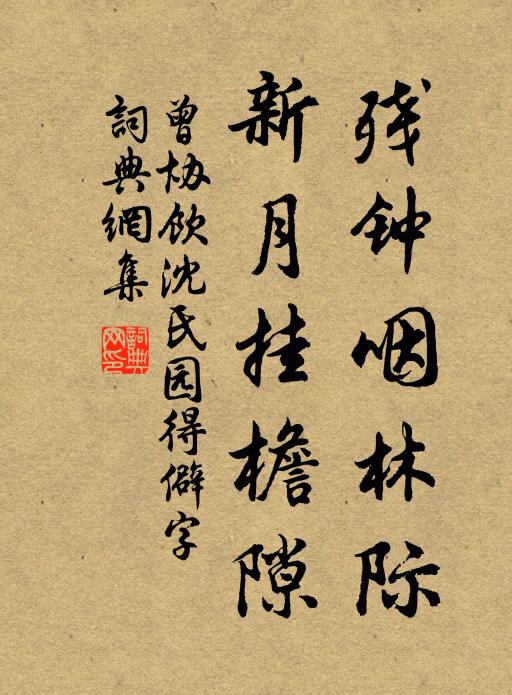 残钟咽林际
新月挂檐隙
曾协饮沈氏园得僻字
詞典網集
詞典網印